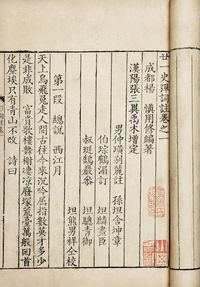 廿一史彈詞註卷之一
成都楊 慎用修編著
漢陽張三異禹木增定
男仲璜別麓註 孫坦含坤章
伯琮鶴湄訂 坦麟畫臣
叔珽鶴巖叅 坦驄青御
坦熊男祥仝校
第一段 總說 西江月
天上烏飛兔走人間古往今來沉吟屈指數英才多少
是非成敗 富貴歌樓舞榭凄涼廢塚荒臺萬般回首
化塵埃只有青山不改 詩曰